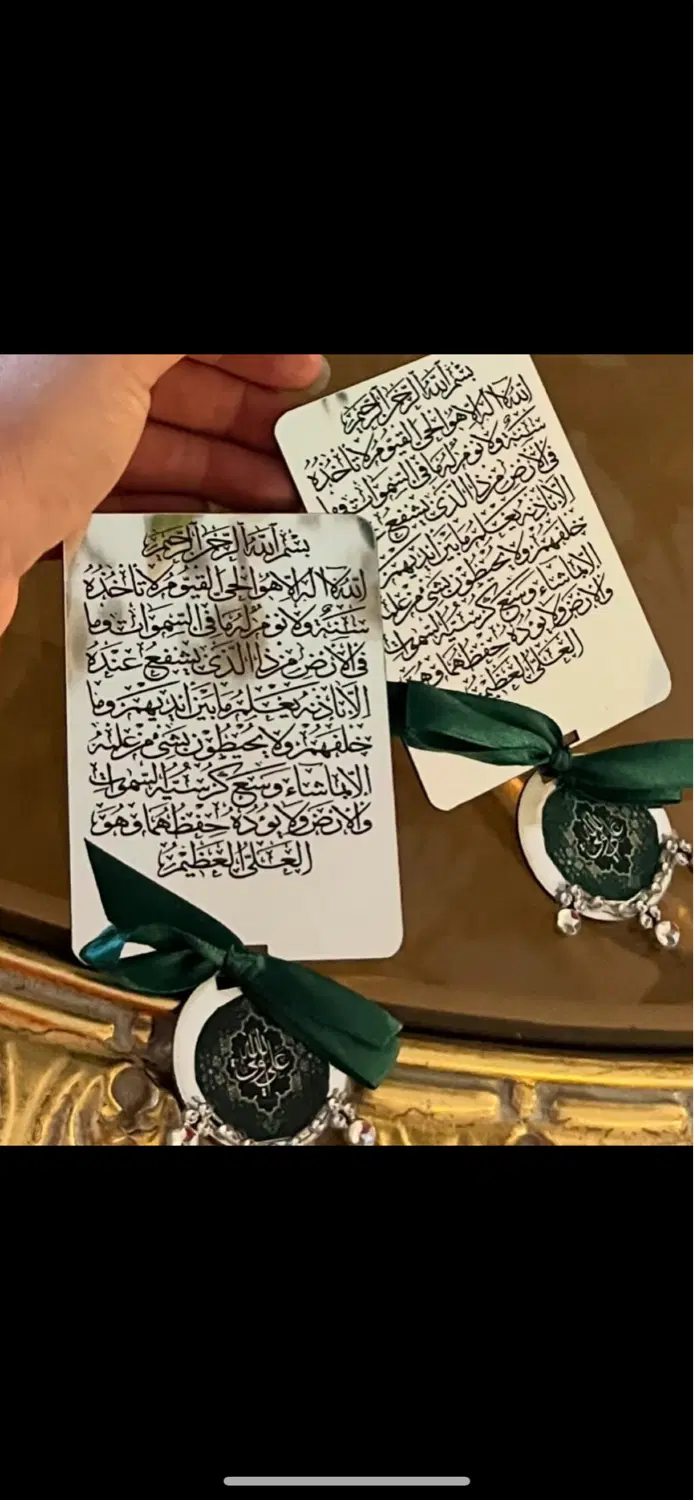 بسم الله الرحمن الرحيم
الله لا اله الا هو الحي القيوم لا تأخذه
سنة ولا نوم له ما في السموات وما
في الارض من ذا الذي يشفع عنده
الا باذنه يعلم ما بين ايديهم وما
خلفهم ولا يحيطون بشيء من علمه
الا بما شاء وسع كرسيه السموات
والارض ولا يؤده حفظهما وهو
العلي العظيم
علي ولي الله
بسم الله الرحمن الرحيم
الله لا اله الا هو الحي القيوم لا تأخذه
سنة ولا نوم له ما في السموات وما
في الارض من ذا الذي يشفع
الا باذنه يعلم ما بين ايديهم
خلفهم ولا يحيطون بشيء من علمه
الا بما شاء وسع كرسيه السموات
والارض ولا يؤده حفظهما وهو
العلي العظيم
علي ولي الله